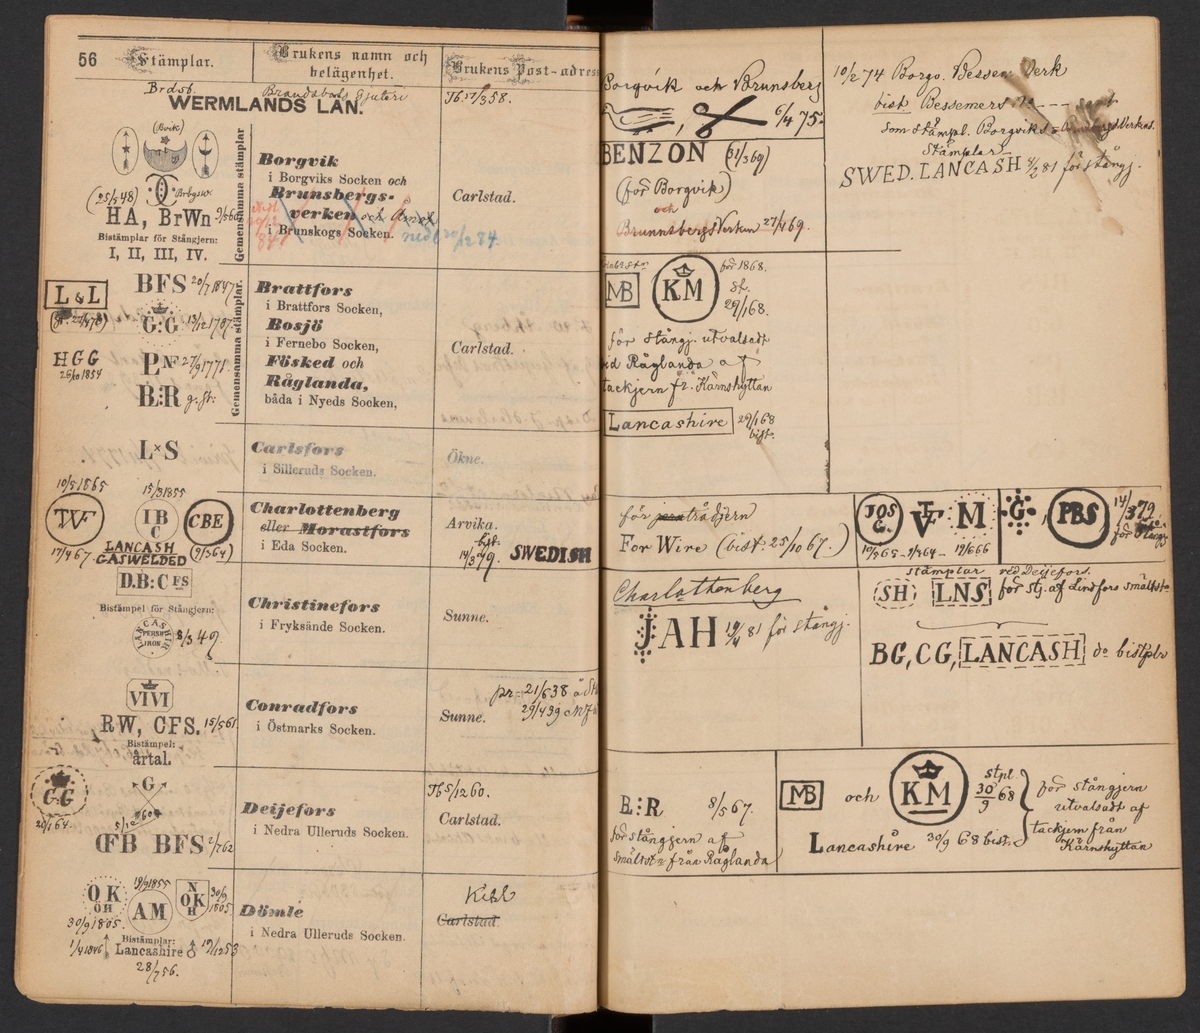 56
Stämplar.
Brukens namn och
belägenhet.
Brukens Post-adress
Brdsb.
Brandsbols Gjuteri
WERMLANDS LÄN.
(Bvik)
HA, BrWn
Bistämplar för Stångjern:
I, II, III, IV.
Gemensamma stämplar
Borgvik
i Borgviks Socken och
Brunsbergs-
verken och
i Brunskogs Socken.
Carlstad.
L&L
BFS 20/7 1847
G:G 13/12 1787
HGG
26/10 1854
27/9 1771
B:R
Gemensamma stämplar.
Brattfors
i Brattfors Socken,
Bosjö
i Fernebo Socken,
Fösked och
Råglanda,
båda i Nyeds Socken,
Carlstad.
L×S
Carlsfors
i Silleruds Socken.
Ökne.
10/5 1865
15/3 1855
TVF
IB
C
CBE
17/4 67.
LANCASH
GASWELDED
(9/3 64)
Charlottenberg
eller Morastfors
i Eda Socken.
Arvika.
bist.
14/3 79. SWEDISH
D.B:CFS
Bistämpel för Stångjern:
LANCASHIR
8/3 49.
Christinefors
i Fryksände Socken.
Sunne.
VIVI
RW, CFS. 15/5 61
Bistämpel:
årtal.
Conradfors
i Östmarks Socken.
Sunne.
G.G
G
BFS
Deijefors
i Nedra Ulleruds Socken.
Carlstad.
OK
ÖH
19/9 1855
AM
N
OK
H
30/9
1805
30/9 1805.
Bistämplar:
Lancashire
19/12 53
28/7 56.
Dömle
i Nedra Ulleruds Socken.
Kihl
Carlstad.
Borgvik och Brunsberg
6/4 75.
BENZON (31/3 69)
(för Borgvik)
och
Brunnsbergs Verken 27/4 69.
10/2 74 Borgv. Bessem Verk
bist Bessemers
som stämpl. Borgviks
Stämplar
SWED. LANCASH 4/2 81 för stångj.
MB
KM
för 1868.
29/1 68.
för stångj. utvalsadt
vid Råglanda af
tackjern fr. Kärnshyttan
Lancashire 29/1 68
bist.
för trådjern
For Wire (bist. 25/10 67.)
JOS
G.
M
G
PBS
14/3 79
Charlottenberg
JAH 19/4 81 för stångj.
stämplar ved Deijefors.
SH LNS för stj. af Lindfors smältst.
BG, CG, LANCASH do bistplr
B:R 8/5 67.
för stångjern af
smältst:r från Råglanda
MB och KM stpl
30/9 68
Lancashire 30/9 68 bist.
för stångjern
utvalsadt af
tackjern från
Kärnshyttan